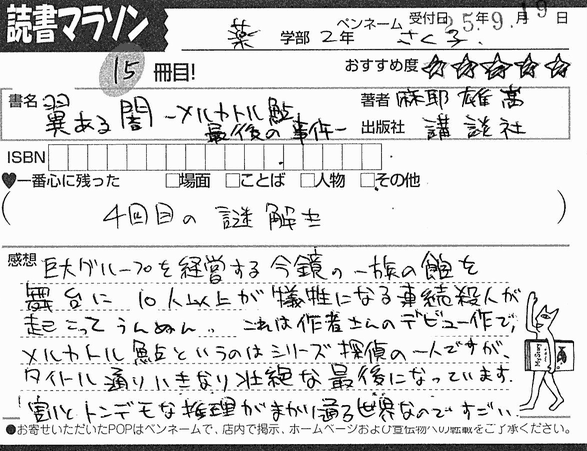 読書マラソン
受付日 25年9.月19日
薬 学部 2年 ペンネーム さく子.
15 冊目!
おすすめ度 ☆☆☆☆☆
書名 翼ある闇 ~メルカトル鮎
最後の事件~
著者 麻耶 雄嵩
出版社 講談社
ISBN
♥一番心に残った □場面 □ことば □人物 □その他
(4回目の謎解き)
感想 巨大グループを経営する今鏡の一族の館を
舞台に 10人以上が犠牲になる連続殺人が
起こってうんぬん。 これは作者さんのデビュー作で、
メルカトル鮎というのはシリーズ探偵の一人ですが、
タイトル通りいきなり壮絶な最後になっています.
割とトンデモな推理がまかり通る世界なのですごい.
●お寄せいただいたPOPはペンネームで、店内で掲示、ホームページおよび宣伝物への転載をご了承ください。